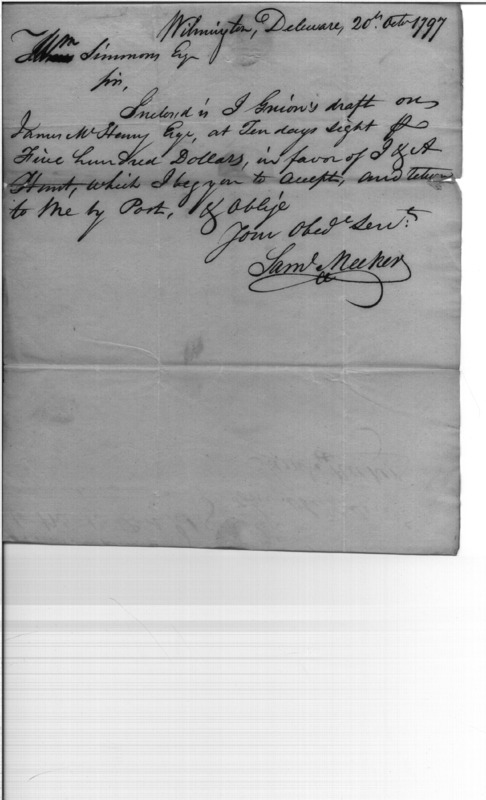 Wilmington, Deleware, 20th Octr 1797
Wm Simmons Esqr
Sir,
Inclosed is J Guion's draft on
James McHenry Esqr, at Ten days sight for
Five hundred Dollars, in favor of J & A
Hunt, which I beg you to accept, and return
to Me by Post, & oblige
Your Obedt Servt
Saml Meeker